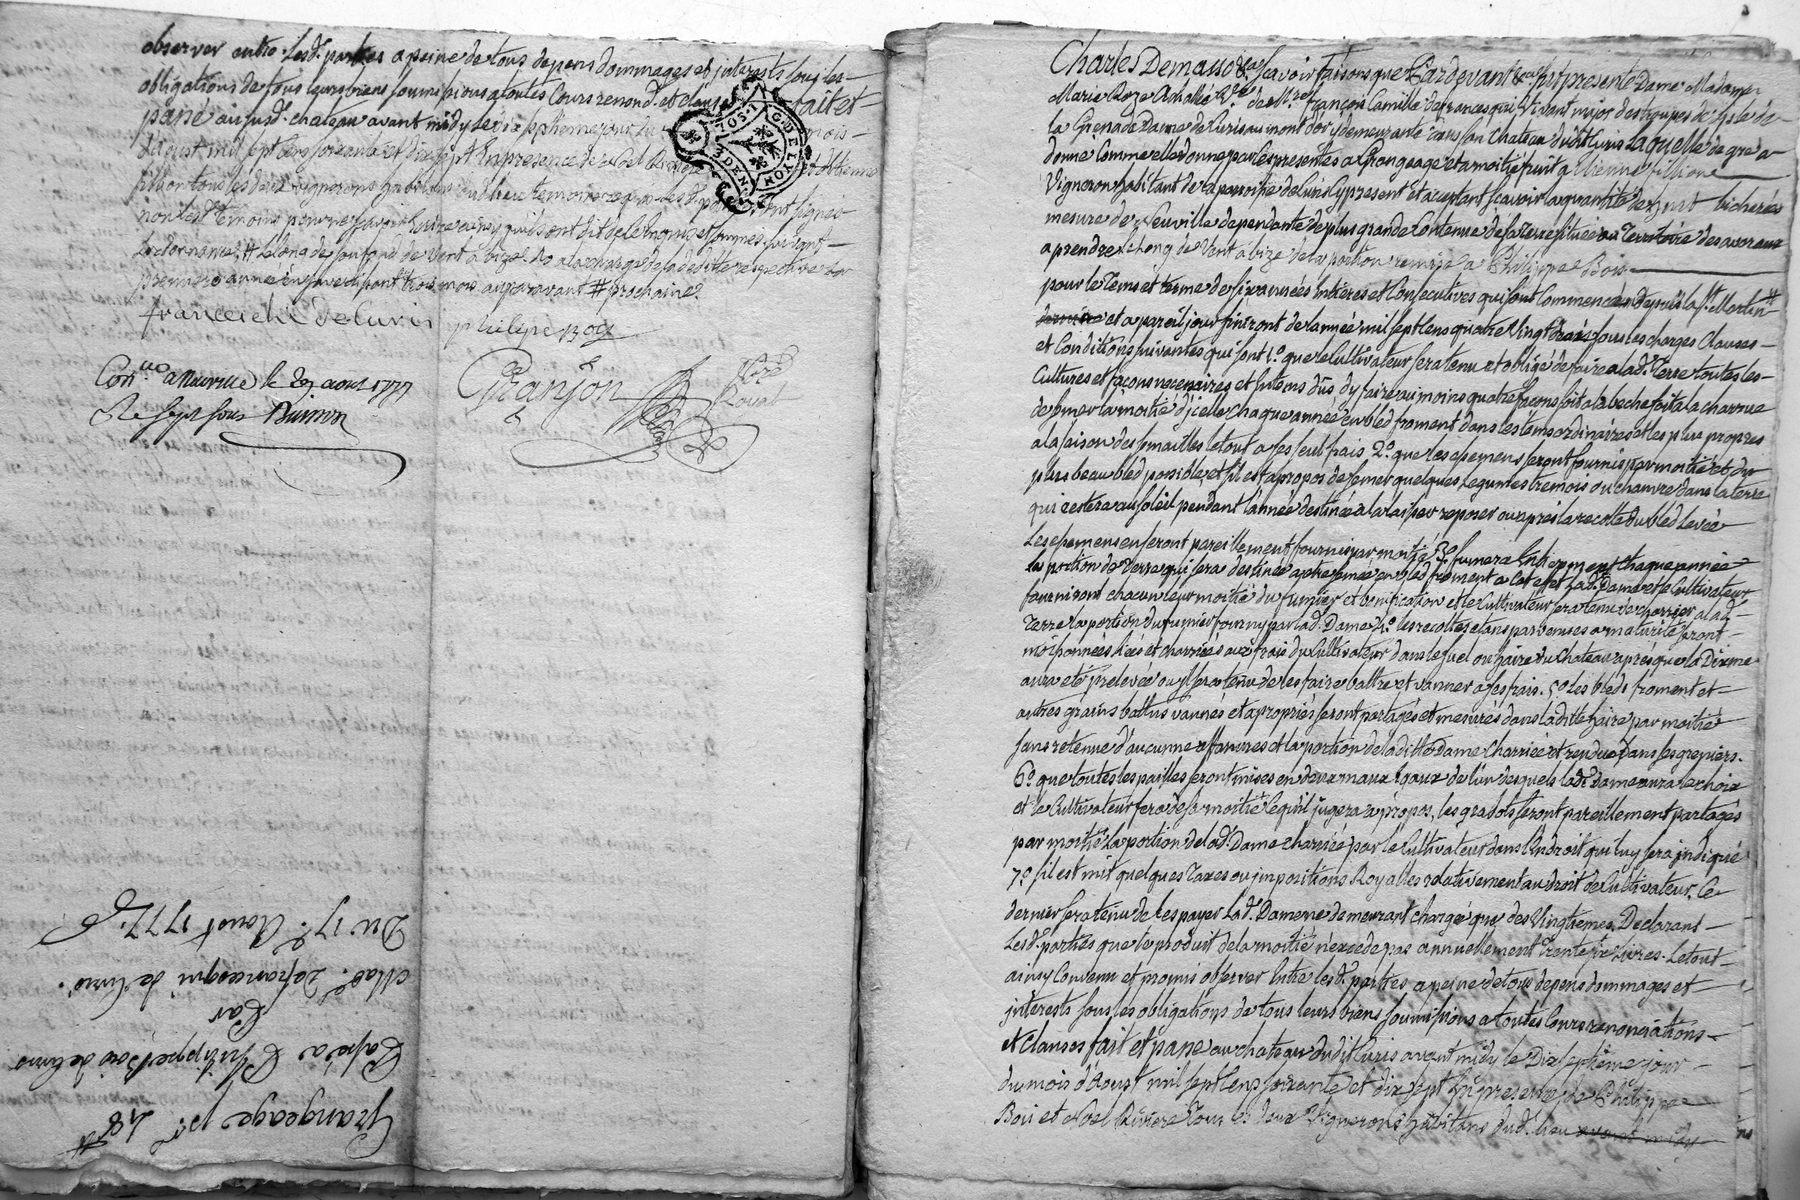 observer entre lesd. parties a peine de tous depens dommages et interests sous les
obligations de tous leurs biens soumissions a toutes Cours renond. et clauses fait et
passé au susd. chateau avant midy le dix septieme jour du mois
d'aoust mil sept cens soixante et dix sept En presence de
fillion tous les deux vignerons habitans dud. lieu temoins requis lesd. parties ont signés
non lesd. temoins pour ne scavoir ecrire ainsy qu'ils ont dit de le enquis et sommés suivant
Lordonnance # le long de son fond de vent a bize
premiere année en s'avertissant trois mois auparavant # prochaine
franceschi de curis philipe Bois
Con.lé a Neuville le 29 aout 1777
Re sept sous Buisson
Granjon
Nore Royal
Grangeage pr. 4 8.
Passé a Philippe Bois de Curis
Par
Made. Defrancesqui de Curis.
Du 17e. Aoust 1777.
Charles Demasso &ca scavoir faisons que Pardevant &ca fut presente Dame Madame
Marie Roze Ve. de Mre. françois Camille defrancesqui, Vivant major des troupes de l'isle de
la Grenade Dame de Curis au mont d'or y demeurante dans son Chateau dudit Curis Laquelle de gré a
donné Comme elle donne par les presentes a Grangeage et a moitié fruit a Etienne fillion
Vigneron habitant de la parroisse de Curis Cy present et acceptant scavoir la quantité de huit bicherés
mesure de Neuville dependante de plus grande Contenue de la terre située au Territoire des avoraux
a prendre le long de Vent a bize de la portion remise a Philippe Bois
pour le Tems et terme de six années entieres et Consecutives qui sont Commencées depuis la St. Martin
derniere et a pareil jour finiront de l'année mil sept cens quatre Vingt trois sous les charges Clauses
et Conditions suivantes qui sont 1.o que le Cultivateur sera tenu et obligé de faire a lad. Terre toutes les
Cultures et façons necessaires et en tems dûs d'y faire au moins quatre façons soit a la beche soit a la charrue
de semer la moitié d'icelle chaque année en bled froment dans les tems ordinaires et les plus propres
a la saison des semailles le tout a ses seul frais 2.o que les semens seront fournis par moitié et du
plus beau bled possible, et s'il est a propos de semer quelques Legumes tremois ou chanvre dans la terre
qui restera au soleil pendant l'année destinée a la laisser reposer ou apres la recolte du bled levée
Les semens en seront pareillement fournis par moitié 3.o fumera chaque année
la portion de Terre qui sera destinée a etre semée en bled froment a cet effet lad. Dame et le Cultivateur
fourniront chacun leur moitié du fumier et bonification et le Cultivateur sera tenu de charrier a lad.
Terre la portion du fumier fourny par lad. Dame 4.o les recoltes etans parvenues a maturité seront
moissonnées liées et charriées aux frais du Cultivateur dans le suel ou haire du Chateau après que la Dixme
aura eté prelevée ou il sera tenu de les faire battre et vanner a ses frais. 5.o les bleds froment et
autres grains battus vannes et apropriés seront partagés et mesurés dans laditte haire par moitié
sans retenue d'aucunne affanures et la portion de laditte Dame Charriée et rendue dans les greniers.
6.o que toutes les pailles seront mises en deux maux egaux de l'un desquels lad. Dame aura le choix
et le Cultivateur fera de sa moitié ce qu'il jugera apropos, les grabots seront pareillement partagés
par moitié la portion de lad. Dame charriée par le Cultivateur dans l'Endroit qui luy sera indiqué
7.o s'il est mit quelques Taxes ou impositions Royalles relativement au droit de Cultivateur. Ce
dernier sera tenu de les payer Lad. Dame ne demeurant chargée que des Vingtiemes. Declarant
Lesd. parties que le produit de la moitié n'excede pas annuellement trente six Livres. Le tout
ainsy Convenu et promis observer Entre lesd. parties a peine de tous depens dommages et
interests sous les obligations de tous leurs biens soumissions a toutes Cours renonciations
et Clauses fait et passé au chateau dudit Curis avant midy le Dix septieme jour
du mois d'Aoust mil sept Cens soixante et dix sept En presence de Philippe
Bois et abel Riviere Tous les deux Vignerons habitans dud. lieu avant midy